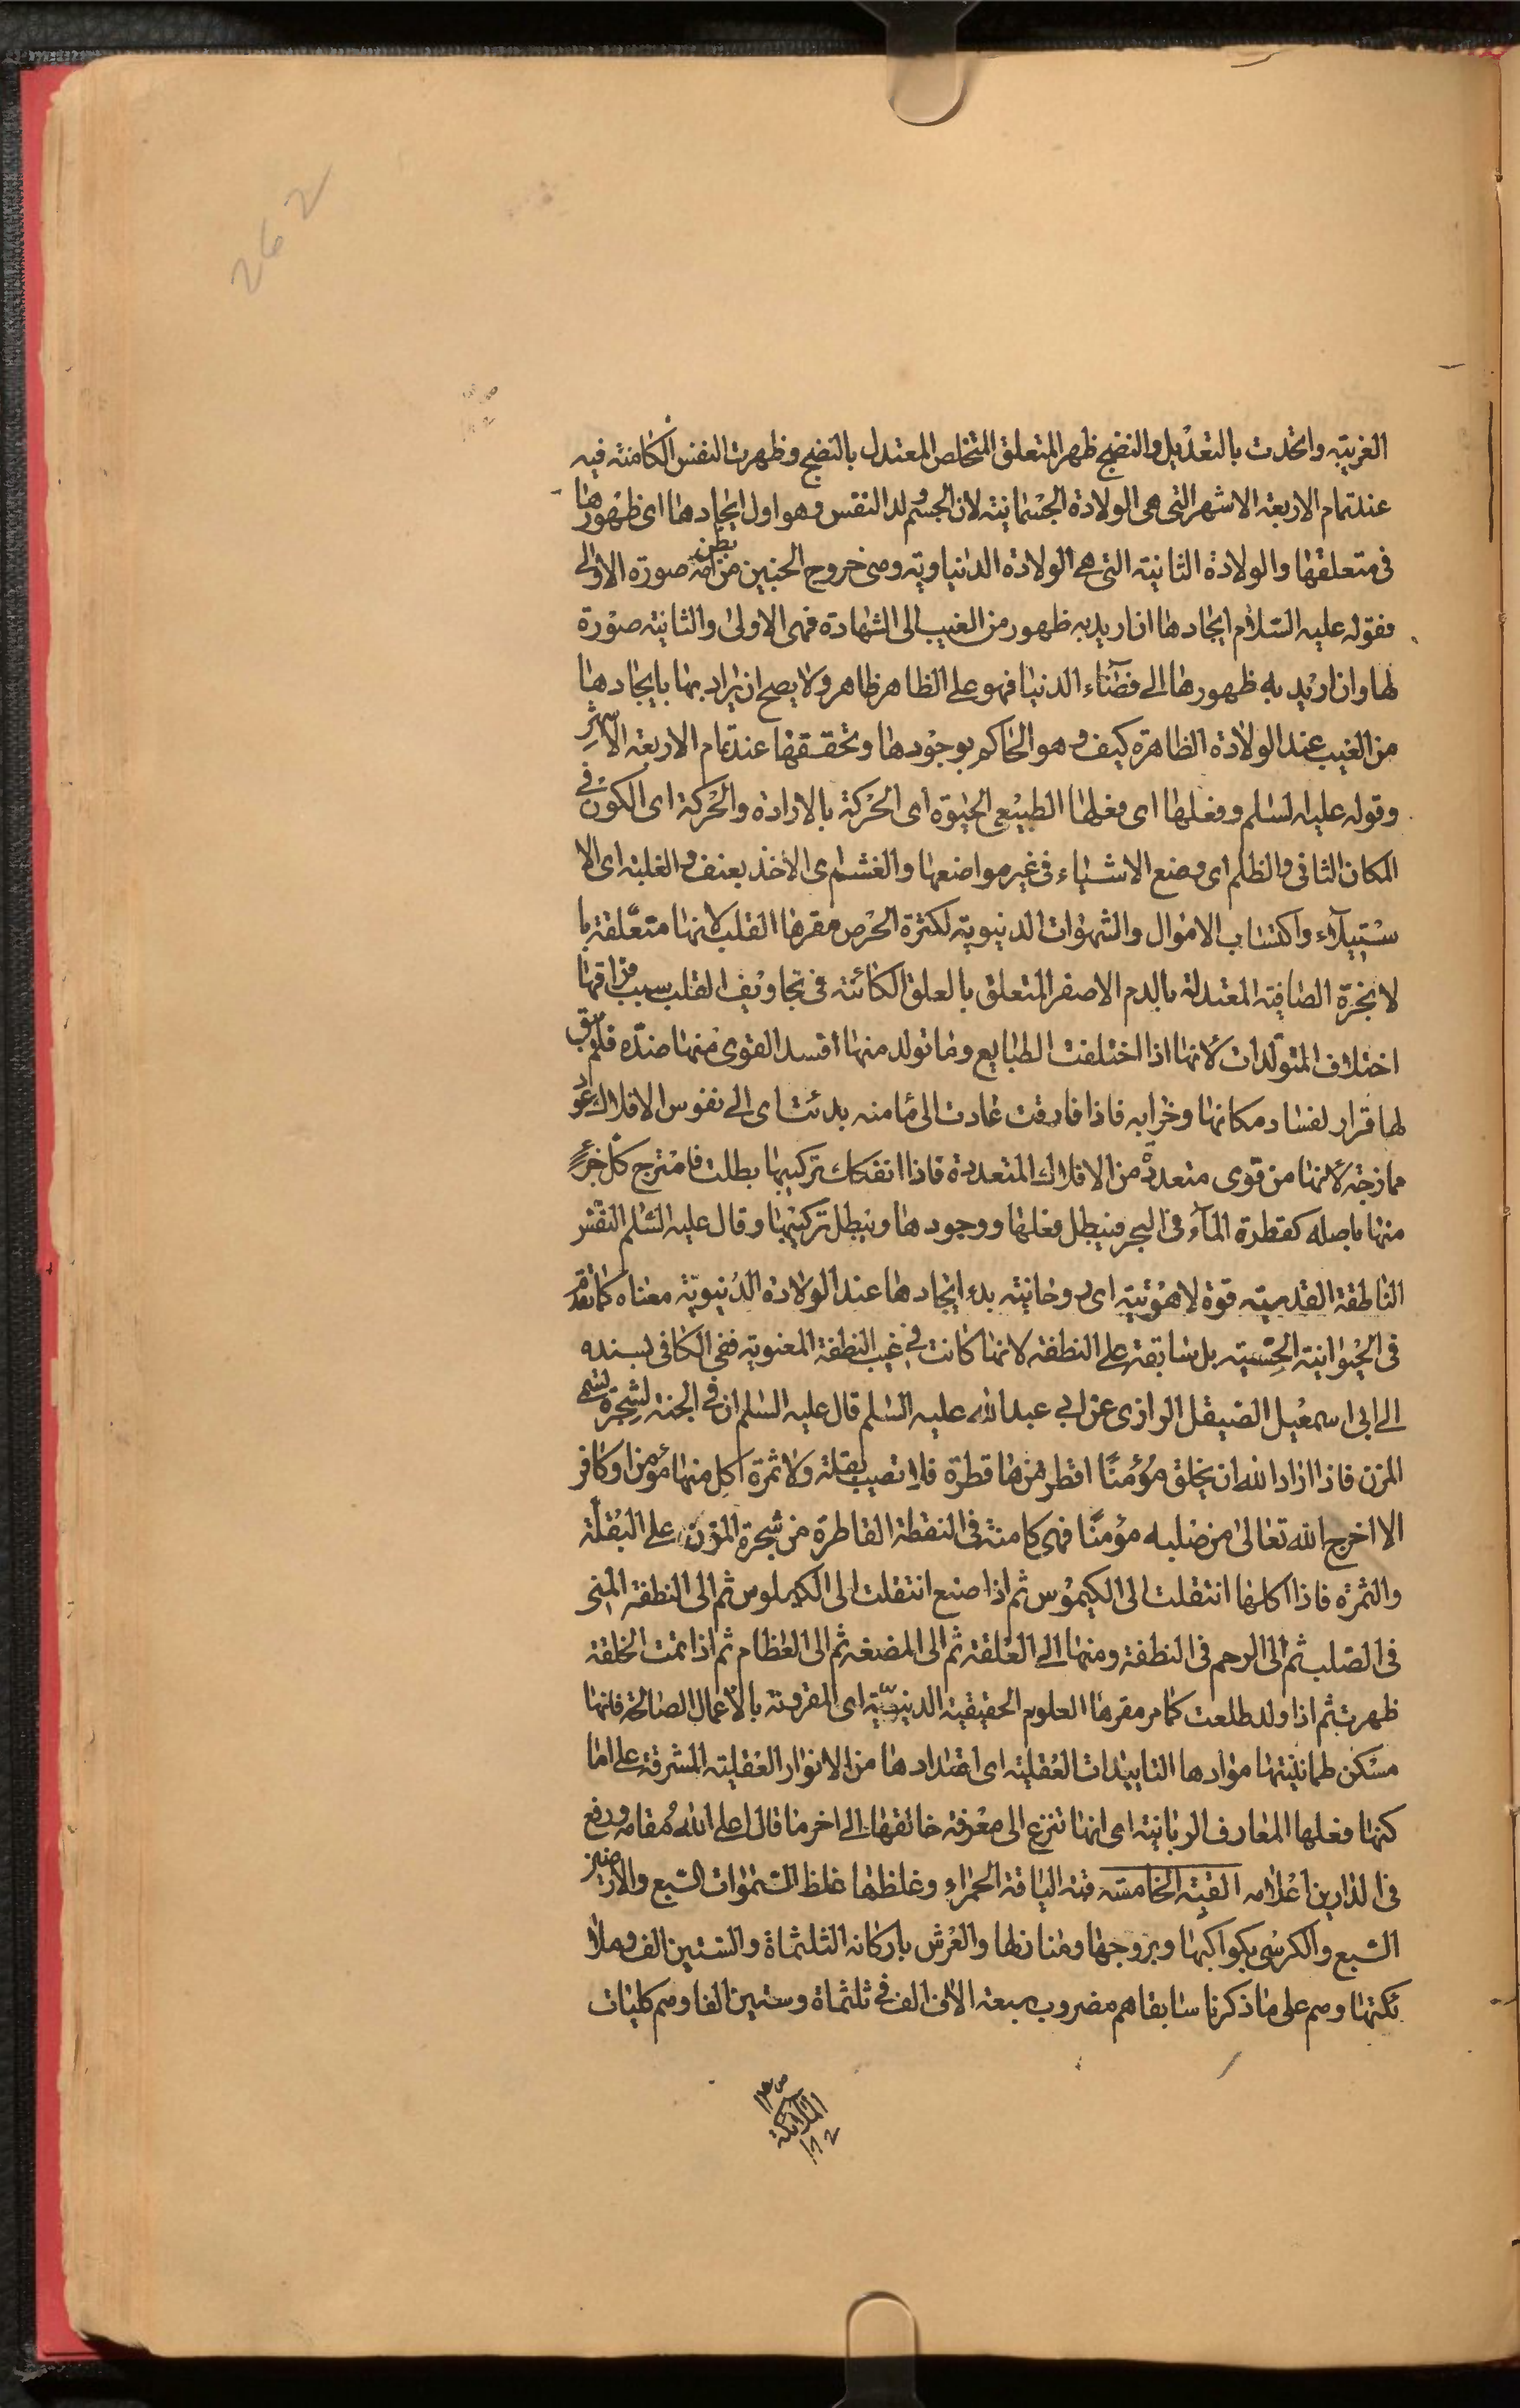 262
الغريبة واتخذت بالتعديل والنضج ظهر المتعلق المتخلص المعتدل بالنضج وظهرت النفس الكامنة فيه
عند تمام الاربعة الاشهر التى هى الولادة الجسمانية لان الجسم ولد النفس وهو اول ايجادها اى ظهورها
فى متعلقها والولادة الثانية التى هى الولادة الدنياوية وهى خروج الجنين من بطن امه صورة الاولى
فقوله عليه السلام ايجادها ان اريد به ظهور من الغيب الى الشهادة فهى الاولى والثانية صورة
لها وان اريد به ظهورها الى فضاء الدنيا فهو على الظاهر ظاهر ولا يصح ان يراد بها بايجادها
من الغيب عند الولادة الظاهرة كيف وهو الحاكم بوجودها وتحققها عند تمام الاربعة الاشهر
وقوله عليه السلم وفعلها اى فعلها الطبيعى الحيوة اى الحركة بالارادة والحركة اى الكون فى
المكان الثانى والظلم اى وضع الاشياء فى غير مواضعها والغشم اى الاخذ بعنف والغلبة اى الا
ستيلاء واكتساب الاموال والشهوات الدنيوية لكثرة الحرص مقرها القلب لانها متعلقة با
لابخرة الصافية المعتدلة بالدم الاصفر المتعلق بالعلق الكائنة فى تجاويف القلب سبب فراقها
اختلاف المتولدات لانها اذا اختلفت الطبايع وما تولد منها افسد القوى منها ضده فلم يبق
لها قرار لفساد مكانها وخرابه فاذا فارقت عادت الى ما منه بدئت اى الى نفوس الافلاك عود
ممازجة لانها من قوى متعددة من الافلاك المتعددة فاذا انفكاك تركيبها بطلت فامتزج كل جزء
منها باصله كقطرة الماء فى البحر فيبطل فعلها ووجودها ويبطل تركيبها وقال عليه السلم النفس
الناطقة القدسية قوة لاهوتية اى روحانية بدء ايجادها عند الولادة الدنيوية معناه كما تقدم
فى الحيوانية الحسية بل سابقة على النطفة لانها كانت فى غيب النطفة المعنوية ففى الكافى بسنده
الى ابى اسمعيل الصيقل الرازى عن ابى عبد الله عليه السلم قال عليه السلم ان فى الجنة لشجرة تسمى
المزن فاذا اراد الله ان يخلق مؤمنا اقطر منها قطرة فلا تصيب بقلة ولا ثمرة اكل منها مؤمن او كافر
الا اخرج الله تعالى من صلبه مؤمنا فهى كامنة فى النقطة القاطرة من شجرة المزن على البقلة
والثمرة فاذا اكلها انتقلت الى الكيموس ثم اذا صنع انتقلت الى الكيلوس ثم الى النطفة المنى
فى الصلب ثم الى الرحم فى النطفة ومنها الى العلقة ثم الى المضغة ثم الى العظام ثم اذا تمت الخلقة
ظهرت ثم اذا ولد طلعت كما مر مقرها العلوم الحقيقية الدينية اى المقرونة بالاعمال الصالحة فانها
مسكن طمانينتها موادها التاييدات العقلية اى امتدادها من الانوار العقلية المشرقة على اما
كنها فعلها المعارف الربانية اى انها تنزع الى معرفة خالقها الى اخر ما قال اعلى الله مقامه ورفع
فى الدارين اعلامه القبة الخامسة قبة الياقتة الحمراء وغلظها غلظ السموات السبع والارضين
السبع والكرسى بكواكبها وبروجها ومنازلها والعرش باركانه الثلثماة والستين الف وملا
ئكتها وهم على ما ذكرنا سابقا هم مضروب سبعة الاف الف فى ثلثماة وستين الفا وهم كليات
الملائكة